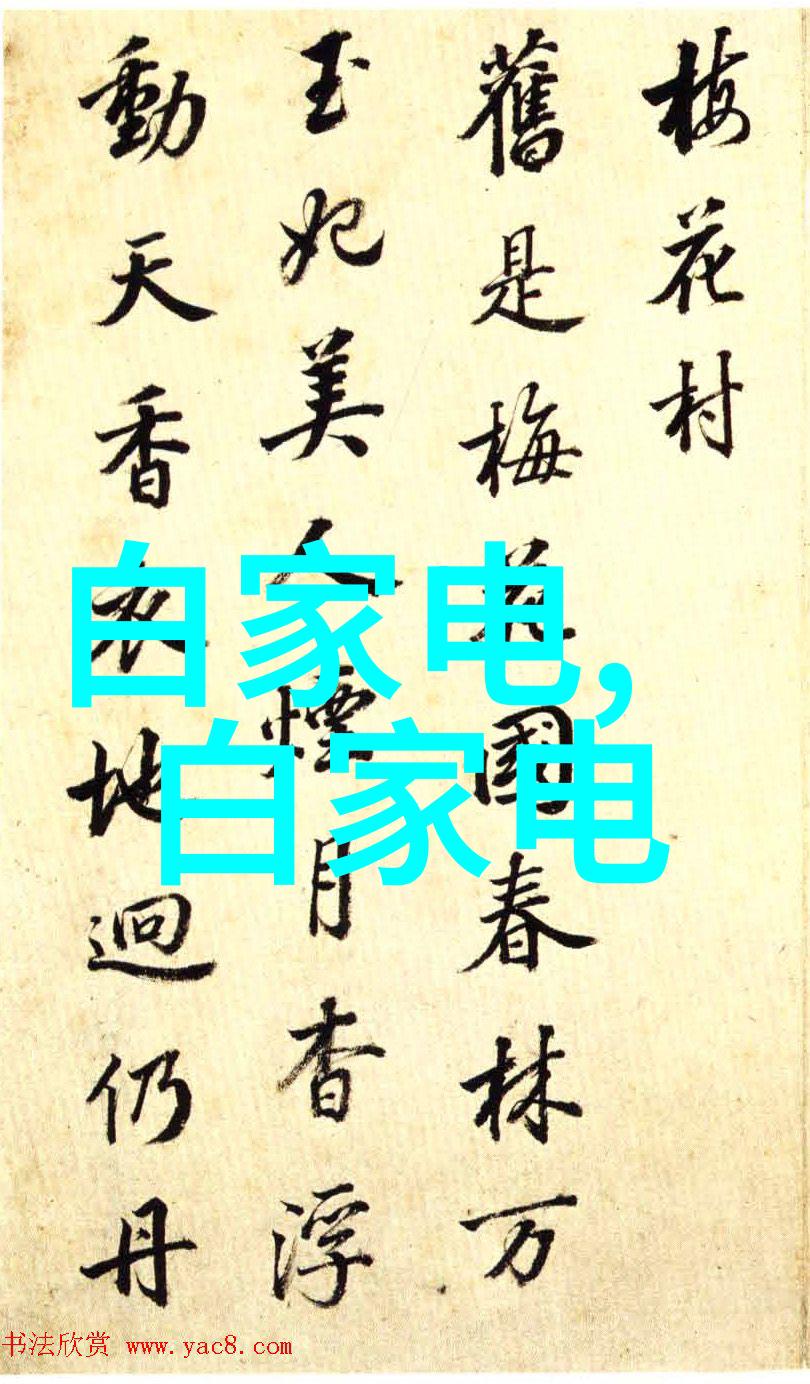 梅花村
舊是梅花國春林万
玉妃美人煙月杳浮
動天香衣地迥仍丹
白家电,
白家电
书法欣赏 www.yac8.com